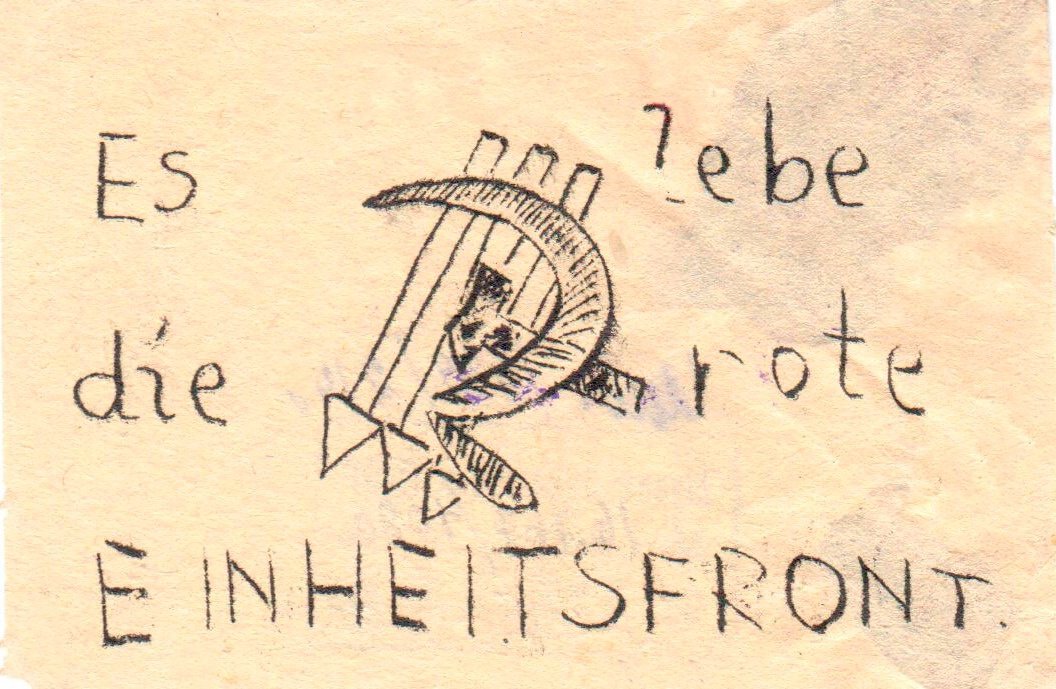 Es lebe
die rote
EINHEITSFRONT.